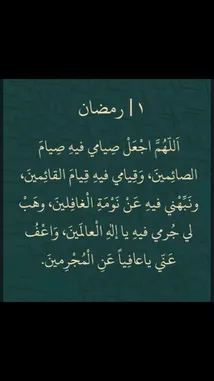 ١| رمضان
اَللّهُمَّ اجْعَلْ صِيامي فيهِ صِيامَ
الصائِمينَ، وَقِيامي فيهِ قِيامَ القائِمينَ،
ونَبِّهْني فيهِ عَنْ نَوْمَةِ الْغافِلينَ، وهَبْ
لي جُرمي فيهِ يا إلهَ الْعالَمينَ، وَاعْفُ
عَنّي ياعافِياً عَنِ الْمُجْرِمينَ.